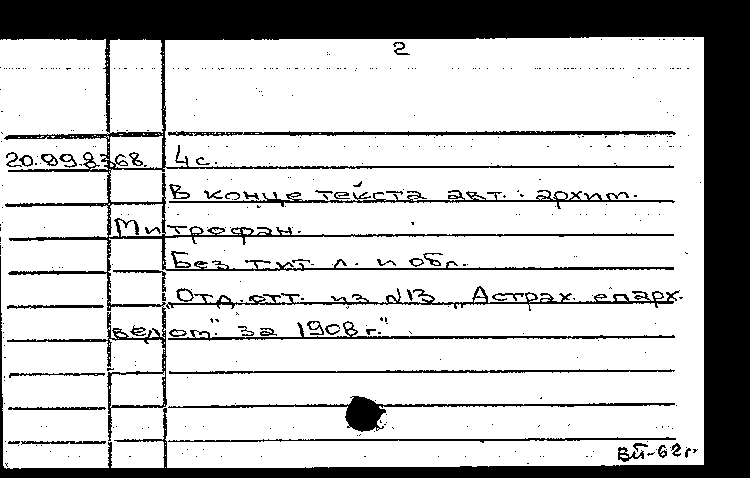 2
20.09.8368 4с.
В конце текста авт.: архим.
Митрофан.
Без тит. л. и обл.
"Отд. отт. из N13 "Астрах. епарх.
ведом." за 1908г."
ВП-62г.